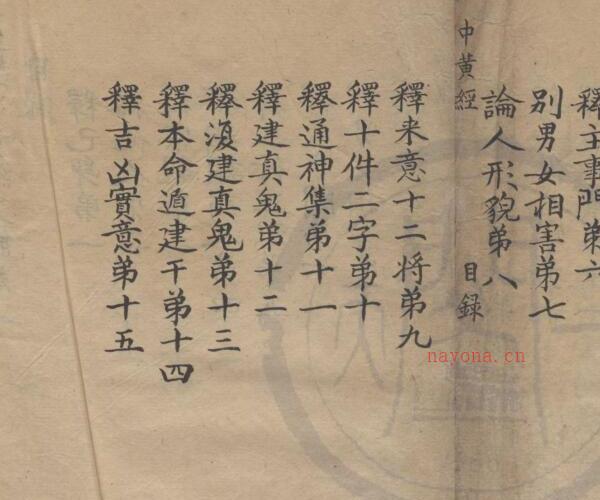 釋主事門苐六
別男女相害苐七
論人形貌苐八
中黃經 目録
釋来意十二将苐九
釋十件二字苐十
釋通神集苐十一
釋建真鬼苐十二
釋復建真鬼苐十三
釋本命遁建干苐十四
釋吉凶實意苐十五
nayona.cn